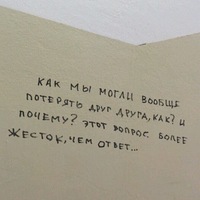 КАК МЫ МОГЛИ ВООБЩЕ
ПОТЕРЯТЬ ДРУГ ДРУГА, КАК? И
ПОЧЕМУ? ЭТОТ ВОПРОС БОЛЕЕ
ЖЕСТОК, ЧЕМ ОТВЕТ...